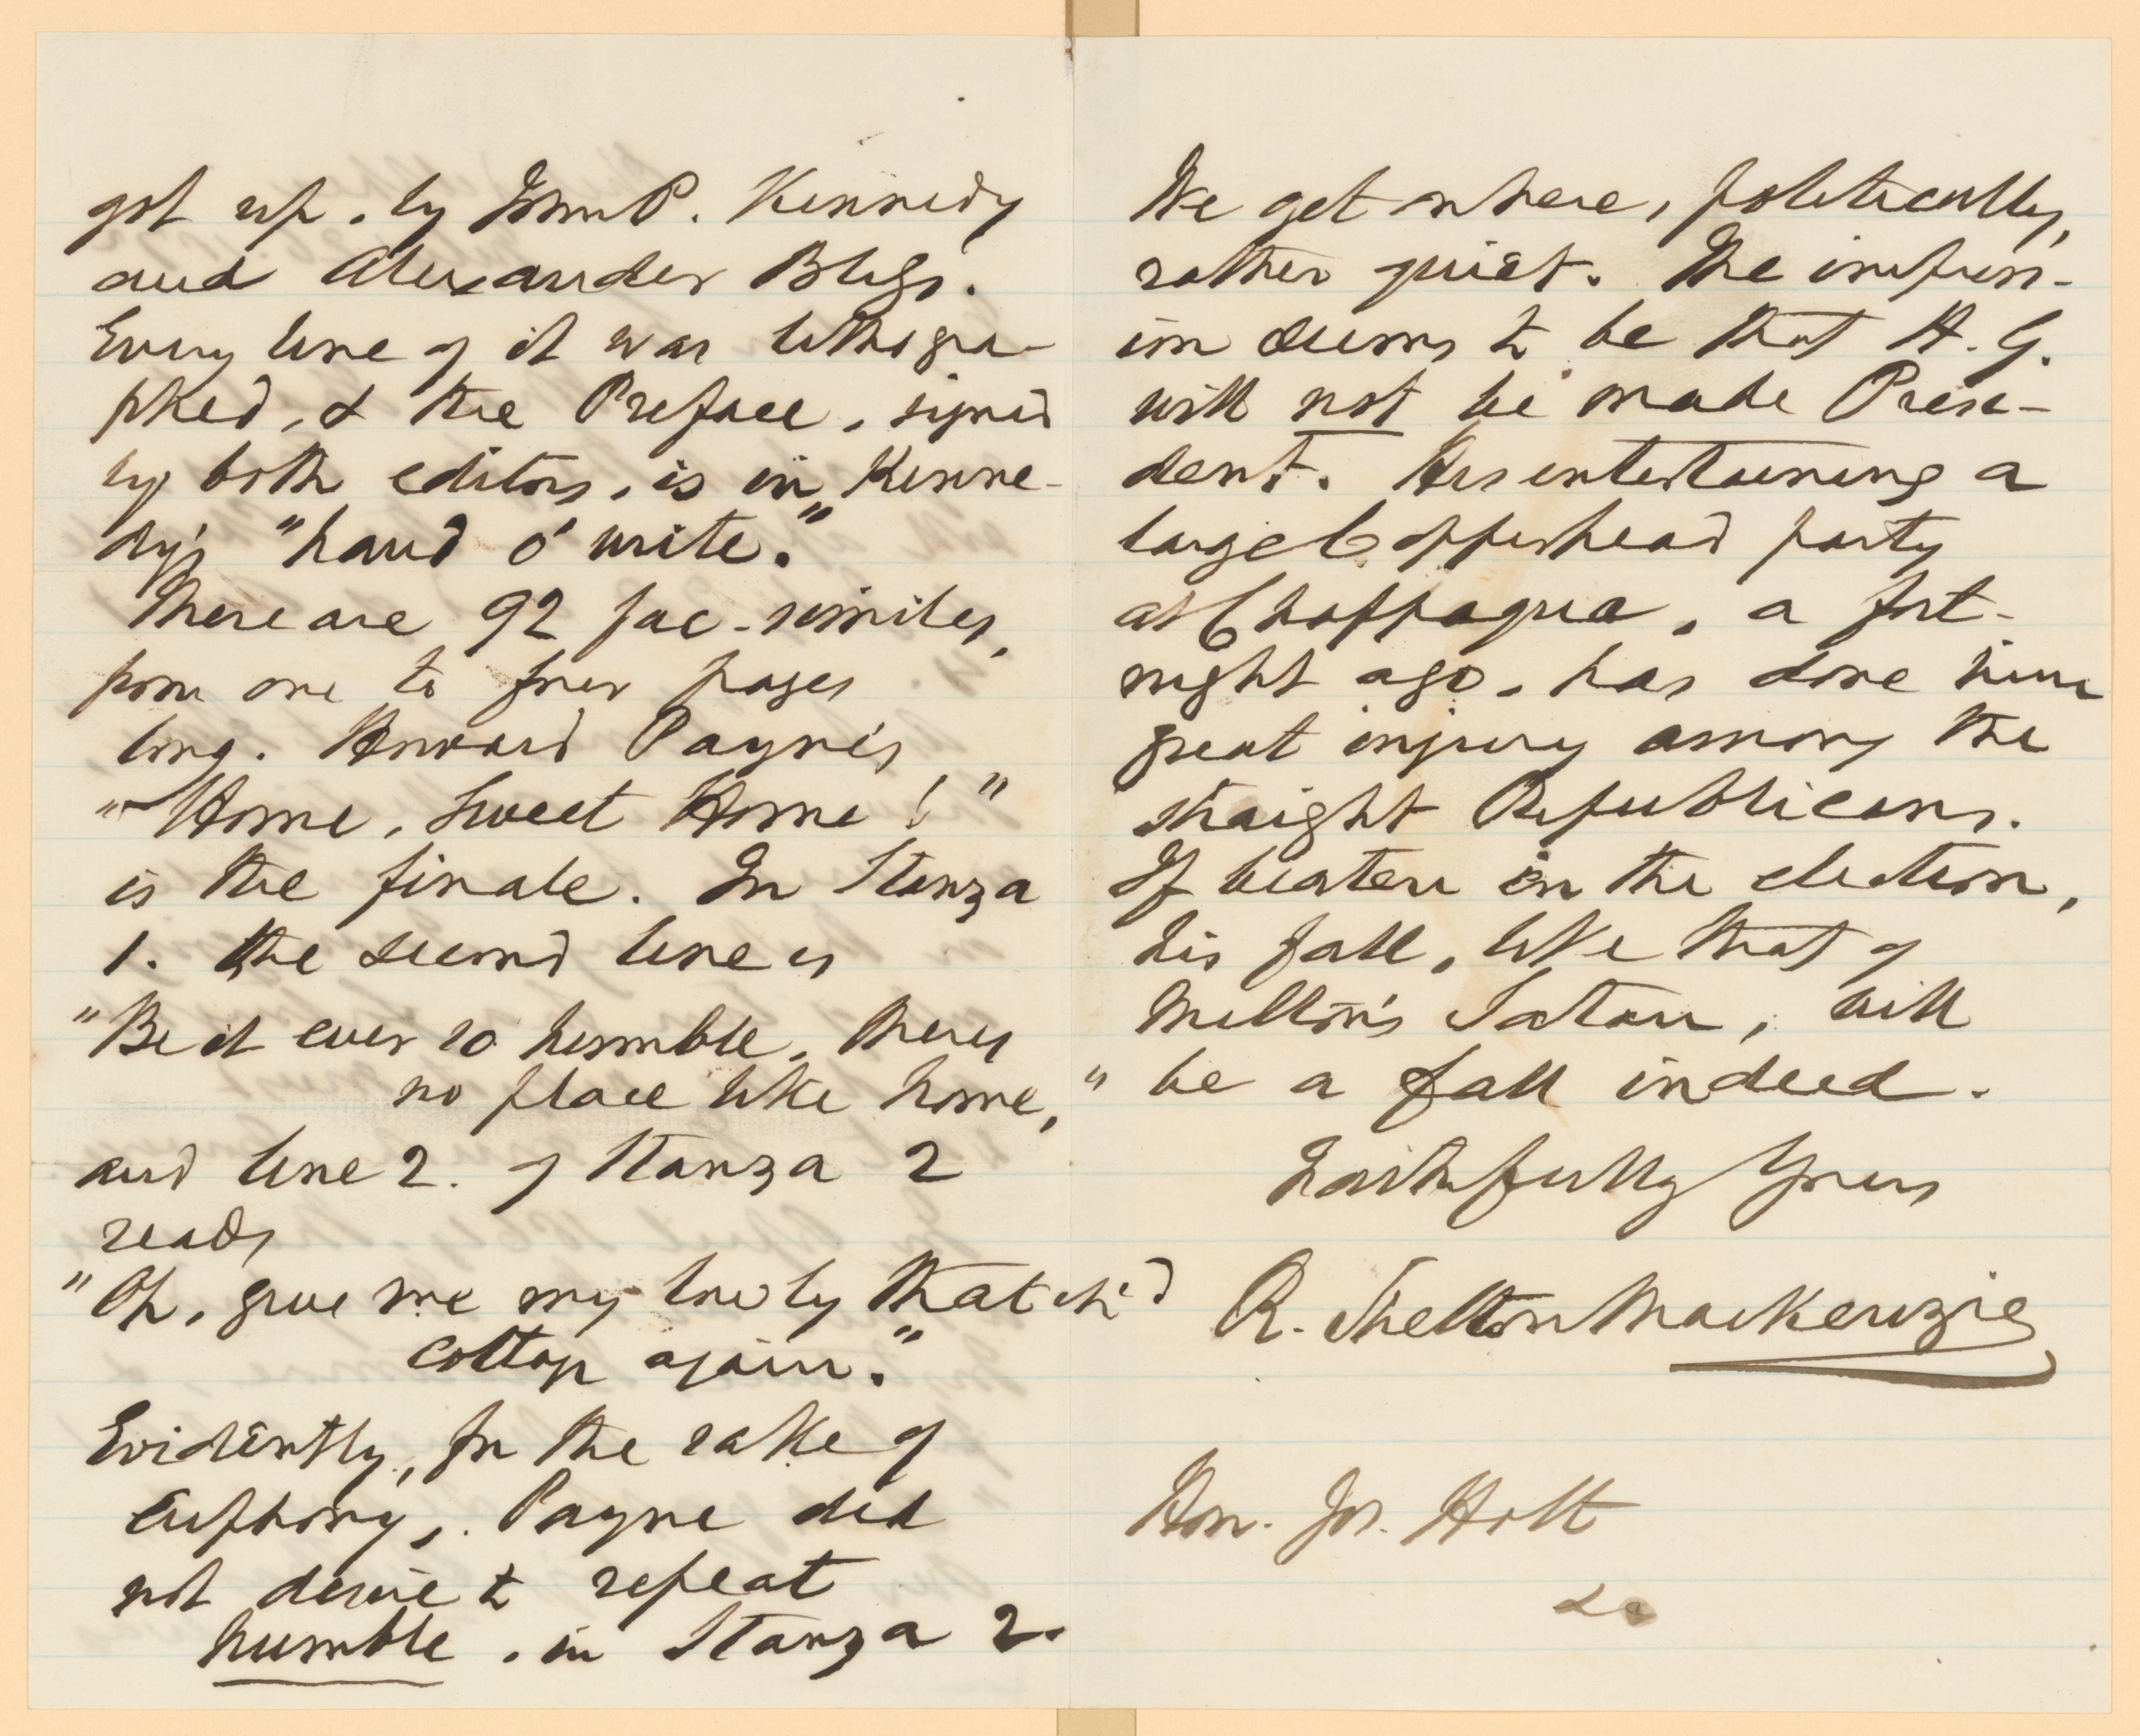 got up, by John P. Kennedy
and Alexander Bliss.
Every line of it was lithogra-
phed, & the Preface, signed
by both editors, is in Kenne-
dy's "hand o' write."
There are 92 fac-similes,
from one to four pages
long. Howard Payne's
"Home, Sweet Home!"
is the finale. In Stanza
1. the second line is
"Be it ever so humble, there's
no place like home,"
and line 2. of Stanza 2
reads
"Oh, give me my lowly thatch'd
cottage again."
Evidently, for the sake of
Euphony, Payne did
not desire to repeat
humble, in Stanza 2.
We get on here, politically,
rather quiet. The impress-
ion seems to be that H. G.
will not be made Presi-
dent. His entertaining a
large Copperhead party
at Chappaqua, a fort-
night ago, has done him
great injury among the
straight Republicans.
If beaten in the election,
his fall, like that of
Milton's Satan, will
be a fall indeed.
Faithfully Yours
R. Shelton Mackenzie
Hon. Jos. Holt